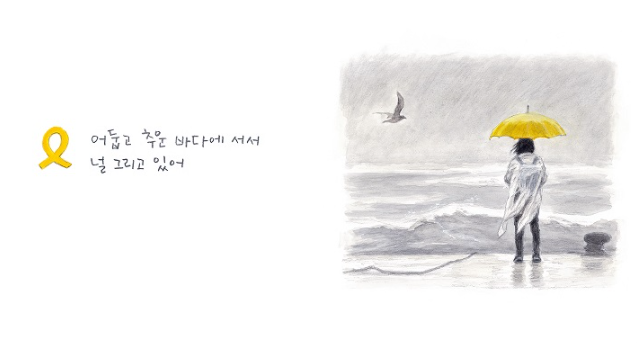 어둡고 추운 바다에 서서
널 그리고 있어